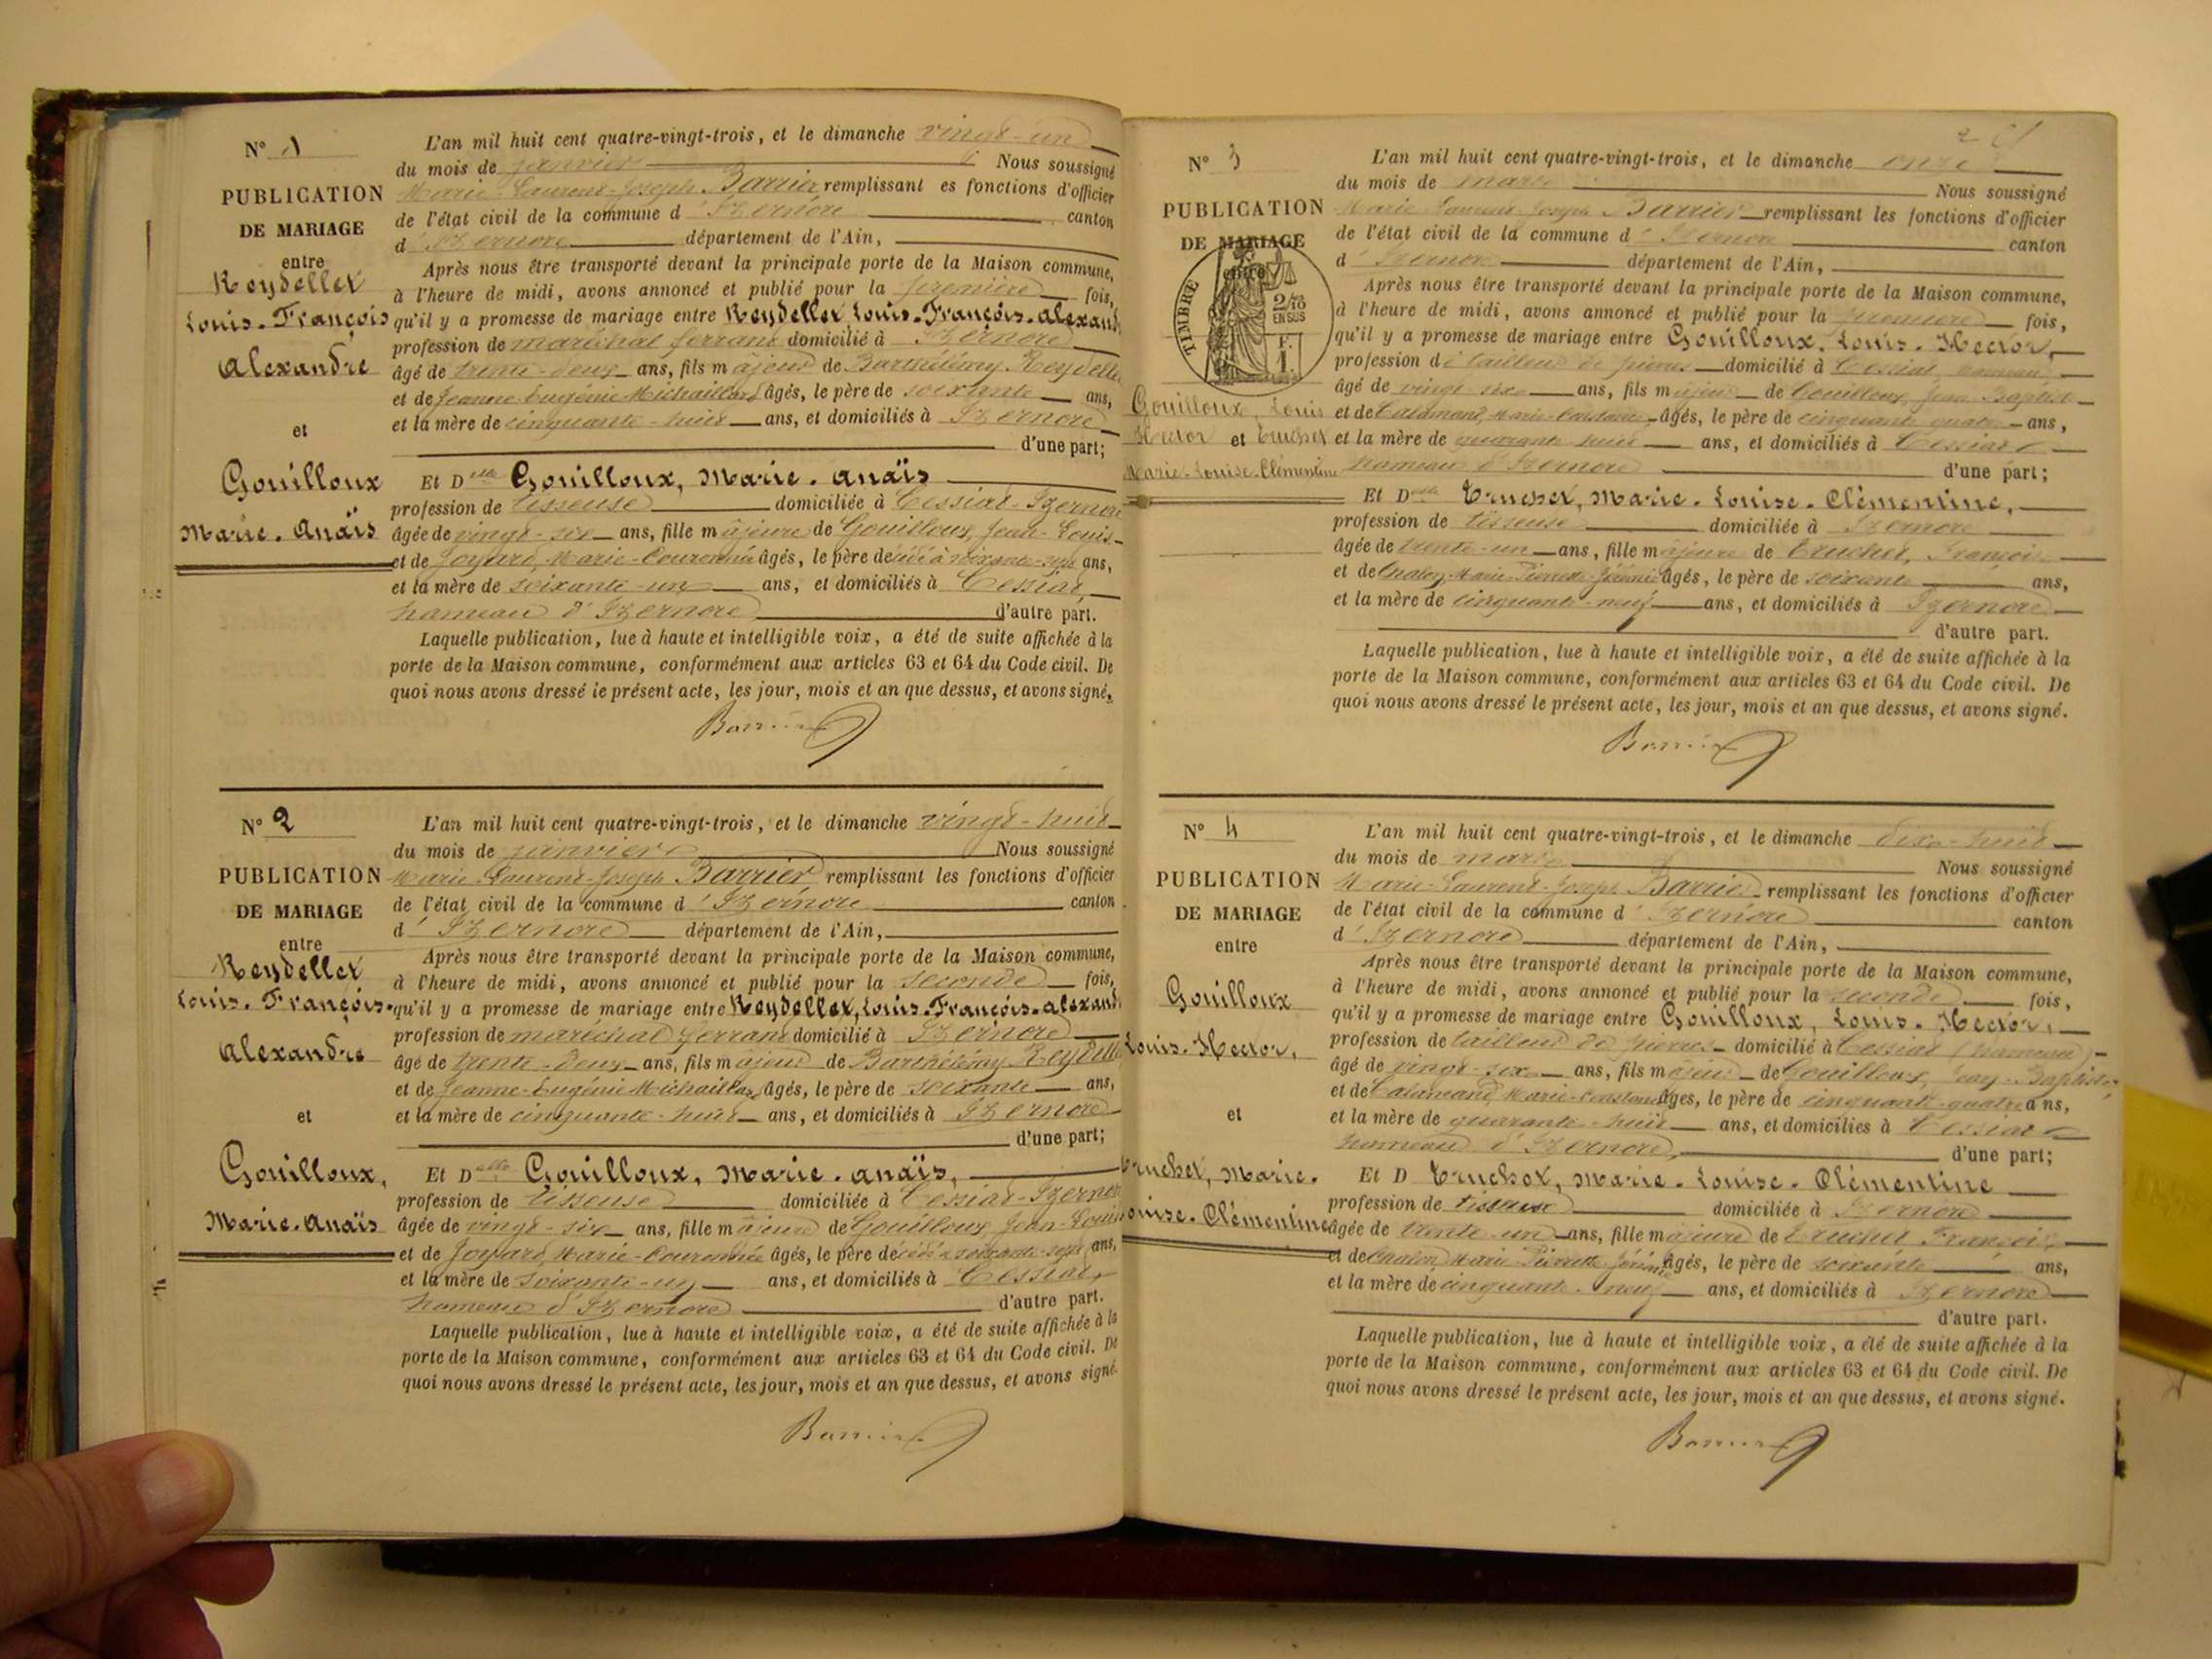 N° 1
PUBLICATION
DE MARIAGE
entre
Reydellet
Louis-François
Alexandre
et
Gouilloux
Marie-Anaïs
L'an mil huit cent quatre-vingt-trois, et le dimanche vingt-un
du mois de janvier Nous soussigné
Marie-Laurent-Joseph Barrier remplissant es fonctions d'officier
de l'état civil de la commune d'Izernore canton
d'Izernore département de l'Ain,
Après nous être transporté devant la principale porte de la Maison commune,
à l'heure de midi, avons annoncé et publié pour la première fois,
qu'il y a promesse de mariage entre Reydellet, Louis-François-Alexand
profession de maréchal ferrant domicilié à Izernore
âgé de trente-deux ans, fils majeur de Barthélémy Reydelle
et de Jeanne Eugénie Michaillard âgés, le père de soixante ans,
et la mère de cinquante-huit ans, et domiciliés à Izernore
d'une part;
Et Dlle Gouilloux, Marie-Anaïs
profession de tisseuse domiciliée à Cessiat-Izernore
âgée de vingt-six ans, fille majeure de Gouilloux, Jean-Louis
et de Joyard, Marie-Couronnée âgés, le père décédé à soixante-sept ans,
et la mère de soixante-un ans, et domiciliés à Cessiat,
hameau d'Izernore d'autre part.
Laquelle publication, lue à haute et intelligible voix, a été de suite affichée à la
porte de la Maison commune, conformément aux articles 63 et 64 du Code civil. De
quoi nous avons dressé le présent acte, les jour, mois et an que dessus, et avons signé.
Barrier
N° 2
PUBLICATION
DE MARIAGE
entre
Reydellet
Louis-François-
Alexandre
et
Gouilloux,
Marie-Anaïs
L'an mil huit cent quatre-vingt-trois, et le dimanche vingt-huit
du mois de janvier Nous soussigné
Marie-Laurent-Joseph Barrier remplissant les fonctions d'officier
de l'état civil de la commune d'Izernore canton
d'Izernore département de l'Ain,
Après nous être transporté devant la principale porte de la Maison commune,
à l'heure de midi, avons annoncé et publié pour la seconde fois,
qu'il y a promesse de mariage entre Reydellet, Louis-François-Alexand
profession de maréchal ferrant domicilié à Izernore
âgé de trente-deux ans, fils majeur de Barthélémy Reydelle
et de Jeanne-Eugénie Michaillard âgés, le père de soixante ans,
et la mère de cinquante-huit ans, et domiciliés à Izernore
d'une part;
Et Dlle Gouilloux, Marie-Anaïs,
profession de tisseuse domiciliée à Cessiat-Izernore
âgée de vingt-six ans, fille majeure de Gouilloux Jean-Louis
et de Joyard, Marie-Couronnée âgés, le père décédé à soixante-sept ans,
et la mère de soixante-un ans, et domiciliés à Cessiat,
hameau d'Izernore d'autre part.
Laquelle publication, lue à haute et intelligible voix, a été de suite affichée à la
porte de la Maison commune, conformément aux articles 63 et 64 du Code civil. De
quoi nous avons dressé le présent acte, les jour, mois et an que dessus, et avons signé.
Barrier
2
N° 3
PUBLICATION
DE MARIAGE
entre
TIMBRE
2/10
EN SUS
F.
1.
Gouilloux, Louis
Hector et Truchet
Marie-Louise-Clémentine
L'an mil huit cent quatre-vingt-trois, et le dimanche onze
du mois de mars Nous soussigné
Marie Laurent Joseph Barrier remplissant les fonctions d'officier
de l'état civil de la commune d'Izernore canton
d'Izernore département de l'Ain,
Après nous être transporté devant la principale porte de la Maison commune,
à l'heure de midi, avons annoncé et publié pour la première fois,
qu'il y a promesse de mariage entre Gouilloux, Louis-Hector,
profession de tailleur de pierres domicilié à Cessiat, hameau
âgé de vingt-six ans, fils majeur de Gouilloux, Jean Baptist
et de Calamand, Marie-Constance âgés, le père de cinquante quatre ans,
et la mère de quarante huit ans, et domiciliés à Cessiat
hameau d'Izernore d'une part;
Et Dlle Truchet, Marie-Louise-Clémentine,
profession de tisseuse domiciliée à Izernore
âgée de trente-un ans, fille majeure de Truchet, François
et de Chalon, Marie-Pierrette-Jérémie âgés, le père de soixante ans,
et la mère de cinquante-neuf ans, et domiciliés à Izernore
d'autre part.
Laquelle publication, lue à haute et intelligible voix, a été de suite affichée à la
porte de la Maison commune, conformément aux articles 63 et 64 du Code civil. De
quoi nous avons dressé le présent acte, les jour, mois et an que dessus, et avons signé.
Barrier
N° 4
PUBLICATION
DE MARIAGE
entre
Gouilloux
Louis-Hector,
et
Truchet, Marie-
Louise-Clémentine
L'an mil huit cent quatre-vingt-trois, et le dimanche dix-huit
du mois de mars Nous soussigné
Marie-Laurent-Joseph Barrier remplissant les fonctions d'officier
de l'état civil de la commune d'Izernore canton
d'Izernore département de l'Ain,
Après nous être transporté devant la principale porte de la Maison commune,
à l'heure de midi, avons annoncé et publié pour la seconde fois,
qu'il y a promesse de mariage entre Gouilloux, Louis-Hector,
profession de tailleur de pierres domicilié à Cessiat (hameau)
âgé de vingt-six ans, fils majeur de Gouilloux, Jean-Baptiste,
et de Calamand, Marie-Constance âgés, le père de cinquante-quatre ans,
et la mère de quarante-huit ans, et domiciliés à Cessiat
hameau d'Izernore, d'une part;
Et D Truchet, Marie-Louise-Clémentine
profession de tisseuse domiciliée à Izernore
âgée de trente-un ans, fille majeure de Truchet François
et de Chalon, Marie Pierrette Jérémie âgés, le père de soixante ans,
et la mère de cinquante-neuf ans, et domiciliés à Izernore
d'autre part.
Laquelle publication, lue à haute et intelligible voix, a été de suite affichée à la
porte de la Maison commune, conformément aux articles 63 et 64 du Code civil. De
quoi nous avons dressé le présent acte, les jour, mois et an que dessus, et avons signé.
Barrier